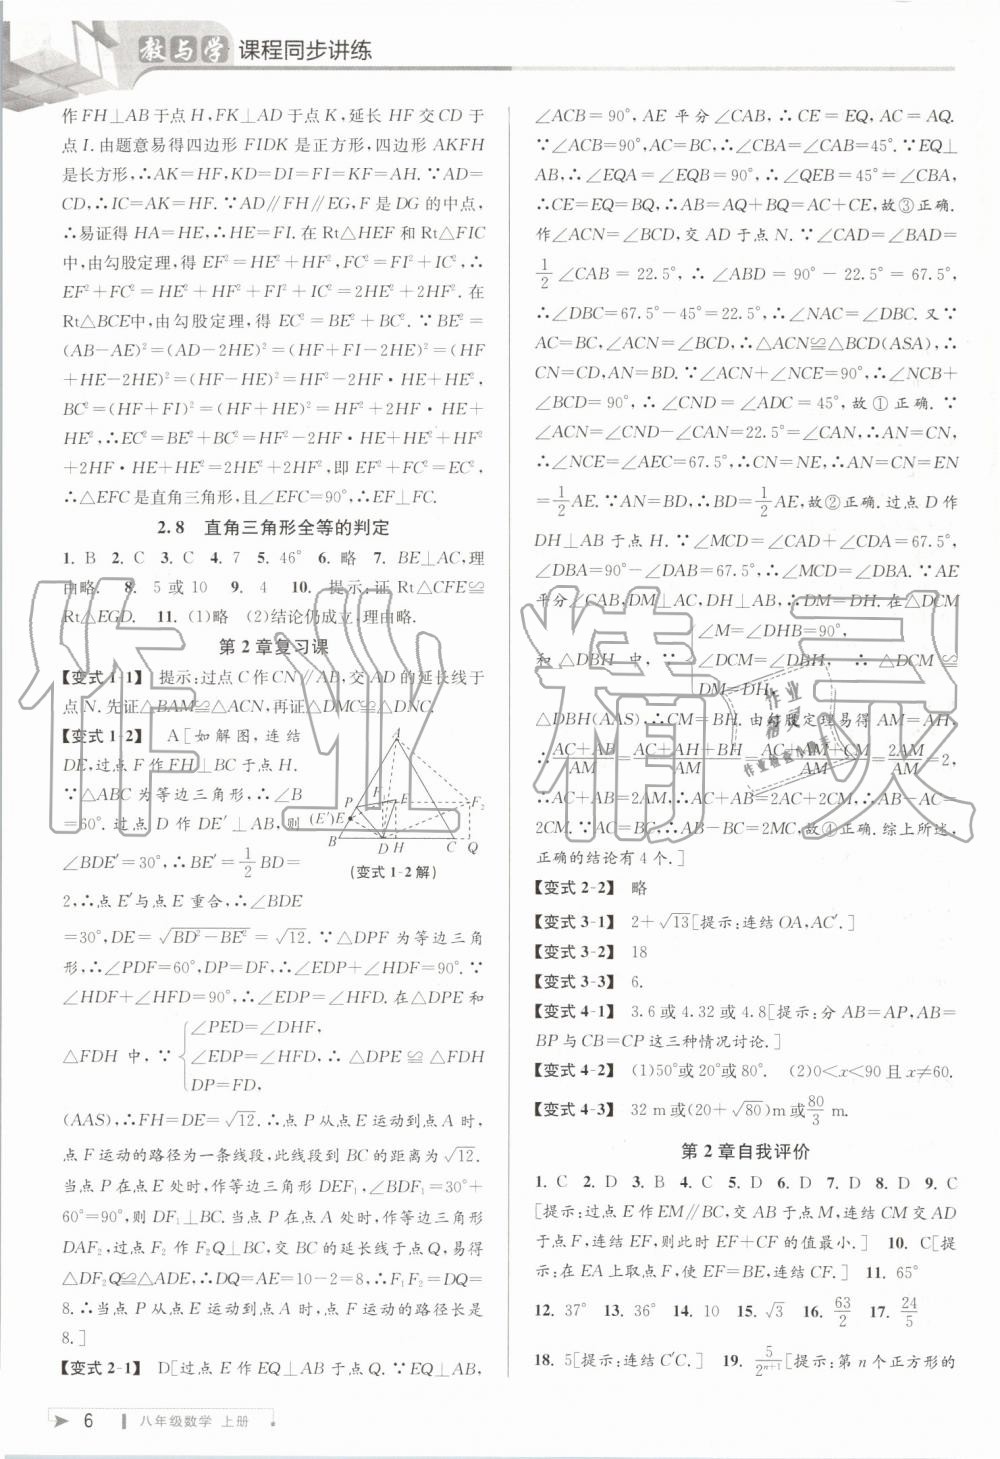 教与学 课程同步讲练
作FH⊥AB于点H,FK⊥AD于点K,延长HF交CD于
点I.由题意易得四边形FIDK是正方形,四边形AKFH
是长方形,∴AK=HF,KD=DI=FI=KF=AH.∵AD=
CD,∴IC=AK=HF.∵AD∥FH∥EG,F是DG的中点,
∴易证得HA=HE,∴HE=FI.在Rt△HEF和Rt△FIC
中,由勾股定理,得EF²=HE²+HF²,FC²=FI²+IC²,∴
EF²+FC²=HE²+HF²+FI²+IC²=2HE²+2HF².在
Rt△BCE中,由勾股定理,得EC²=BE²+BC².∵BE²=
(AB-AE)²=(AD-2HE)²=(HF+FI-2HE)²=(HF
+HE-2HE)²=(HF-HE)²=HF²-2HF·HE+HE²,
BC²=(HF+FI)²=(HF+HE)²=HF²+2HF·HE+
HE²,∴EC²=BE²+BC²=HF²-2HF·HE+HE²+HF²
+2HF·HE+HE²=2HE²+2HF²,即EF²+FC²=EC²,
∴△EFC是直角三角形,且∠EFC=90°,∴EF⊥FC.
2.8 直角三角形全等的判定
1. B 2. C 3. C 4. 7 5. 46° 6. 略 7. BE⊥AC,理
由略. 8. 5或10 9. 4 10. 提示:证Rt△CFE≌
Rt△EGD. 11. (1)略 (2)结论仍成立,理由略.
第2章复习课
【变式1-1】 提示:过点C作CN∥AB,交AD的延长线于
点N.先证△BAM≌△ACN,再证△DMC≌△DNC.
【变式1-2】 A[如解图,连结
DE,过点F作FH⊥BC于点H.
∵△ABC为等边三角形,∴∠B
=60°.过点D作DE′⊥AB,则
∠BDE′=30°,∴BE′=1/2BD=
2,∴点E′与点E重合,∴∠BDE
=30°,DE=√(BD²-BE²)=√12.∵△DPF为等边三角
形,∴∠PDF=60°,DP=DF,∴∠EDP+∠HDF=90°.∵
∠HDF+∠HFD=90°,∴∠EDP=∠HFD.在△DPE和
△FDH中,∵{∠PED=∠DHF,
∠EDP=∠HFD,∴△DPE≌△FDH
DP=FD,
(AAS),∴FH=DE=√12.∴点P从点E运动到点A时,
点F运动的路径为一条线段,此线段到BC的距离为√12.
当点P在点E处时,作等边三角形DEF₁,∠BDF₁=30°+
60°=90°,则DF₁⊥BC.当点P在点A处时,作等边三角形
DAF₂,过点F₂作F₂Q⊥BC,交BC的延长线于点Q,易得
△DF₂Q≌△ADE,∴DQ=AE=10-2=8,∴F₁F₂=DQ=
8.∴当点P从点E运动到点A时,点F运动的路径长是
8.]
A
P
F₁
E
F₂
(E′)E
B
D H
C Q
(变式1-2解)
【变式2-1】 D[过点E作EQ⊥AB于点Q.∵EQ⊥AB,
∠ACB=90°,AE平分∠CAB,∴CE=EQ,AC=AQ.
∵∠ACB=90°,AC=BC,∴∠CBA=∠CAB=45°.∵EQ⊥
AB,∴∠EQA=∠EQB=90°,∴∠QEB=45°=∠CBA,
∴CE=EQ=BQ,∴AB=AQ+BQ=AC+CE,故③正确.
作∠ACN=∠BCD,交AD于点N.∵∠CAD=∠BAD=
1/2∠CAB=22.5°,∴∠ABD=90°-22.5°=67.5°,
∴∠DBC=67.5°-45°=22.5°,∴∠NAC=∠DBC.又∵
AC=BC,∠ACN=∠BCD,∴△ACN≌△BCD(ASA),∴
CN=CD,AN=BD.∵∠ACN+∠NCE=90°,∴∠NCB+
∠BCD=90°,∴∠CND=∠ADC=45°,故①正确.∵
∠ACN=∠CND-∠CAN=22.5°=∠CAN,∴AN=CN,
∴∠NCE=∠AEC=67.5°,∴CN=NE,∴AN=CN=EN
=1/2AE.∵AN=BD,∴BD=1/2AE,故②正确.过点D作
DH⊥AB于点H.∵∠MCD=∠CAD+∠CDA=67.5°,
∠DBA=90°-∠DAB=67.5°,∴∠MCD=∠DBA.∵AE
平分∠CAB,DM⊥AC,DH⊥AB,∴DM=DH.在△DCM
和△DBH中,∵{∠M=∠DHB=90°,
∠DCM=∠DBH,∴△DCM≌
DM=DH,
△DBH(AAS),∴CM=BH.由勾股定理易得AM=AH,
∴(AC+AB)/AM=(AC+AH+BH)/AM=(AC+AM+CM)/AM=2AM/AM=2,
∴AC+AB=2AM,∴AC+AB=2AC+2CM,∴AB-AC=
2CM.∵AC=BC,∴AB-BC=2MC,故④正确.综上所述,
正确的结论有4个.]
【变式2-2】 略
【变式3-1】 2+√13[提示:连结OA,AC′.]
【变式3-2】 18
【变式3-3】 6.
【变式4-1】 3.6或4.32或4.8[提示:分AB=AP,AB=
BP与CB=CP这三种情况讨论.]
【变式4-2】 (1)50°或20°或80°. (2)0<x<90且x≠60.
【变式4-3】 32 m或(20+√80)m或80/3 m.
第2章自我评价
1. C 2. D 3. B 4. C 5. D 6. D 7. D 8. D 9. C
[提示:过点E作EM∥BC,交AB于点M,连结CM交AD
于点F,连结EF,则此时EF+CF的值最小.] 10. C[提
示:在EA上取点F,使EF=BE,连结CF.] 11. 65°
12. 37° 13. 36° 14. 10 15. √3 16. 63/2 17. 24/5
18. 5[提示:连结C′C.] 19. 5/2ⁿ⁺¹[提示:第n个正方形的
6 八年级数学 上册
作业精灵